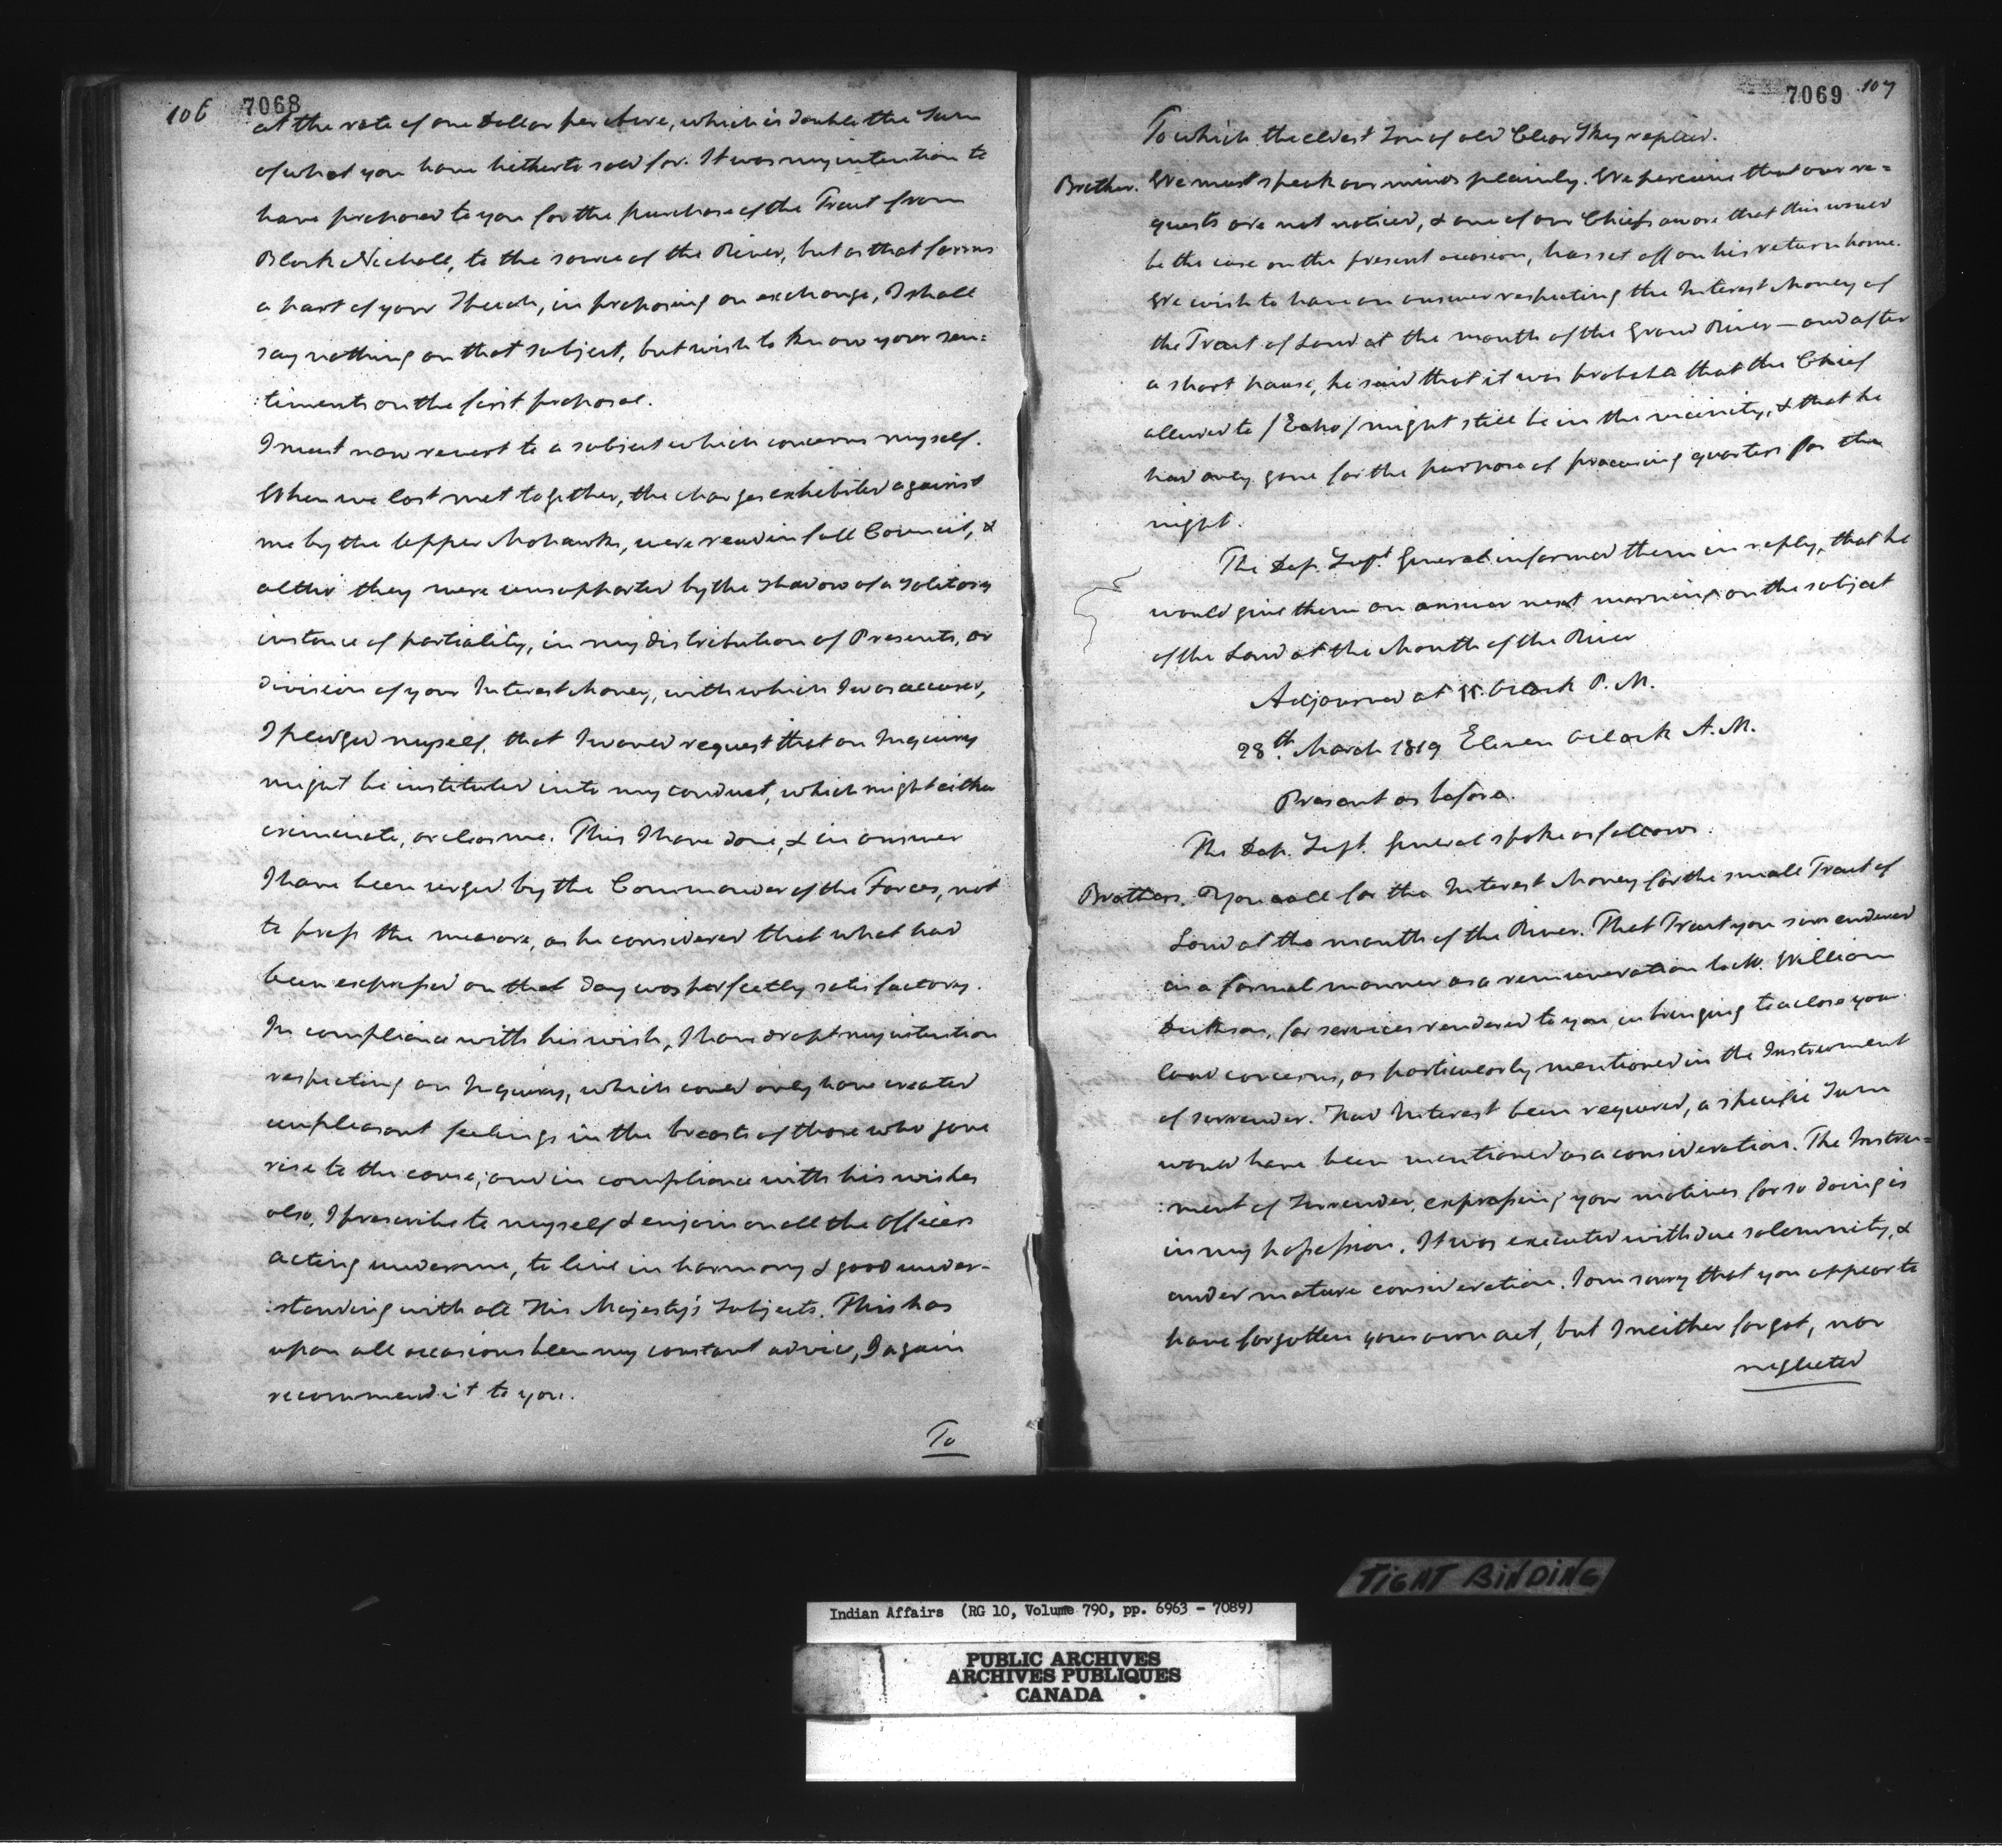 106 7068
at the rate of one Dollar per Acre, which is double the Sum
of what you have hitherto sold for. It was my intention to
have proposed to you for the purchase of the Tract from
Block Nicholl, to the source of the River, but as that forms
a part of your Speech, in proposing an exchange, I shall
say nothing on that subject, but wish to know your sen=
:timents on the first proposal.
I must now revert to a subject which concerns myself.
When we last met together, the charges exhibited against
me by the Upper Mohawks, were read in full Council, &
altho' they were unsupported by the shadow of a solitary
instance of partiality, in my distribution of Presents, or
division of your Interest Money, with which I was accused,
I pledged myself, that I would request that an Inquiry
might be instituted into my conduct, which might either
criminate, or clear me. This I have done, & in answer
I have been urged by the Commander of the Forces, not
to press the measure, as he considered that what had
been expressed on that day was perfectly satisfactory.
In compliance with his wish, I have dropt my intention
respecting an Inquiry, which could only have created
unpleasant feelings in the breasts of those who gave
rise to the cause; and in compliance with his wishes
also, I prescribe to myself & enjoin on all the Officers
acting under me, to live in harmony & good under-
:standing with all His Majesty's Subjects. This has
upon all occasions been my constant advice, I again
recommend it to you.
To
7069 107
To which the eldest Son of old Clear Sky replied.
Brother. We must speak our minds plainly. We perceive that our re=
quests are not noticed, & one of our Chiefs aware that this would
be the case on the present occasion, has set off on his return home.
We wish to have an answer respecting the Interest Money of
the Tract of Land at the mouth of the Grand River — and after
a short pause, he said that it was probable that the Chief
alluded to /Echo/ might still be in the vicinity, & that he
had only gone for the purpose of procuring quarters for the
night.
The Dep. Supt. General informed them in reply, that he
would give them an answer next morning on the subject
of the Land at the Mouth of the River
Adjourned at oClock P. M.
28th. March 1819 Eleven oClock A. M.
Present as before.
The Dep. Supt. General spoke as follows.
Brothers. You call for the Interest Money for the small Tract of
Land at the mouth of the River. That Tract you surrendered
in a formal manner as a remuneration to Mr. William
Dickson, for services rendered to you in bringing to a close your
land concerns, as particularly mentioned in the Instrument
of surrender. Had Interest been required, a specific Sum
would have been mentioned as a consideration. The Instru=
:ment of Surrender, expressing your motives for so doing is
in my possession. It was executed with due solemnity, &
under mature consideration. I am sorry that you appear to
have forgotten your own act, but I neither forgot, nor
neglected
TIGHT BINDING
Indian Affairs (RG 10, Volume 790, pp. 6963 - 7089)
PUBLIC ARCHIVES
ARCHIVES PUBLIQUES
CANADA